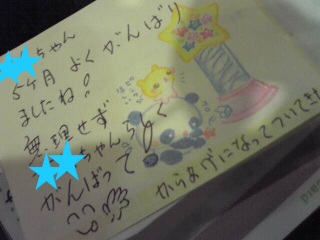 ちゃん
5ヶ月 よく がんばり
ましたね!
無理せず
ちゃんらしく
がんばって
からあげになってついてきた